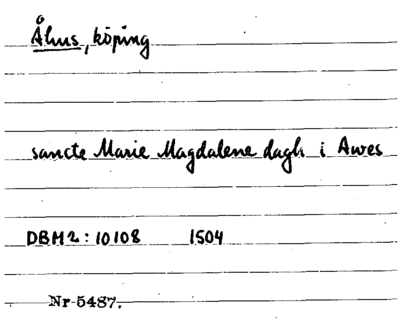 Åhus, köping
sancte Marie Magdalene dagh i Awes
DBM2: 10108 1504
Nr 5487.